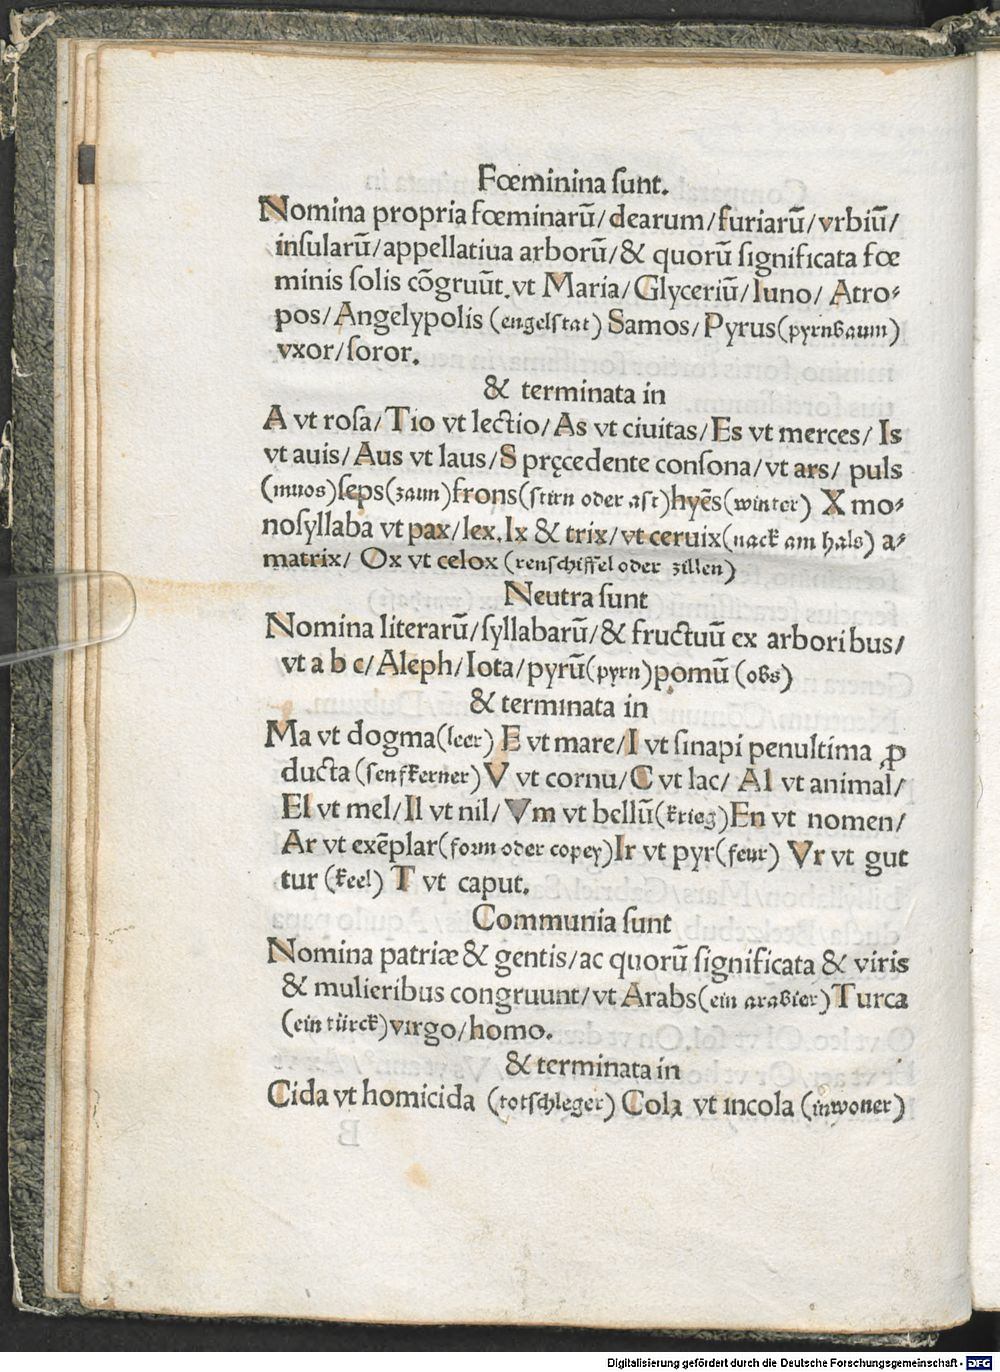 Fœminina sunt.
Nomina propria fœminarū/ dearum/ furiarū/ vrbiū/
insularū/ appellatiua arborū/ & quorū significata fœ
minis solis cōgruūt. vt Maria/ Glyceriū/ Iuno/ Atro⸗
pos/ Angelypolis (engelstat) Samos/ Pyrus (pyrnbaum)
vxor/ soror.
& terminata in
A vt rosa/ Tio vt lectio/ As vt ciuitas/ Es vt merces/ Is
vt auis/ Aus vt laus/ S pręcedente consona/ vt ars/ puls
(muos) seps (zaun) frons (stirn oder ast) hyēs (winter) X mo⸗
nosyllaba vt pax/ lex. Ix & trix/ vt ceruix (nack am hals) a⸗
matrix/ Ox vt celox (renschiffel oder zillen)
Neutra sunt
Nomina literarū/ syllabarū/ & fructuū ex arboribus/
vt a b c/ Aleph/ Iota/ pyrū (pyrn) pomū (obs)
& terminata in
Ma vt dogma (leer) E vt mare/ I vt sinapi penultima ꝓ
ducta (senfkerner) V vt cornu/ C vt lac/ Al vt animal/
El vt mel/ Il vt nil/ Vm vt bellū (krieg) En vt nomen/
Ar vt exēplar (form oder copey) Ir vt pyr (feur) Vr vt gut
tur (keel) T vt caput.
Communia sunt
Nomina patriæ & gentis/ ac quorū significata & viris
& mulieribus congruunt/ vt Arabs (ein arabier) Turca
(ein türck) virgo/ homo.
& terminata in
Cida vt homicida (totschleger) Cola vt incola (inwoner)
Digitalisierung gefördert durch die Deutsche Forschungsgemeinschaft - DFG